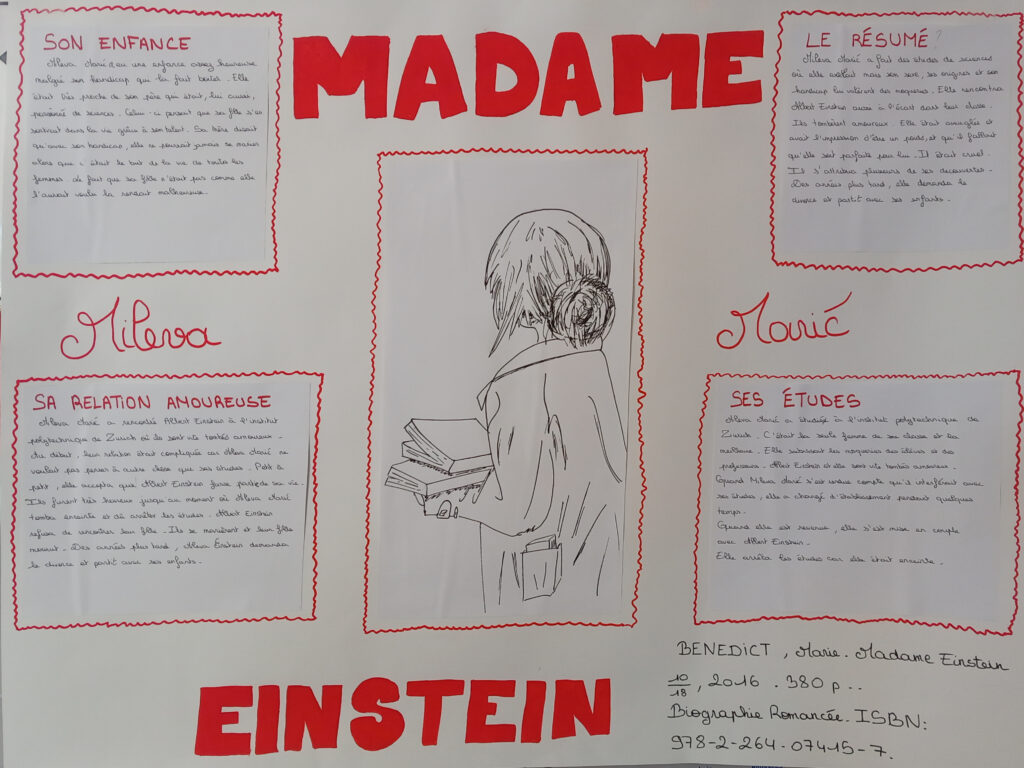 MADAME
SON ENFANCE
Mileva Marić a eu une enfance assez heureuse
malgré son handicap qui la fait boiter. Elle
était très proche de son père qui était, lui aussi,
passionné de sciences. Celui-ci pensait que sa fille s'en
sortirait dans la vie grâce à son talent. Sa mère disait
qu'avec son handicap, elle ne pourrait jamais se marier
alors que c'était le but de la vie de toutes les
femmes. Le fait que sa fille n'était pas comme elle
l'aurait voulu la rendait malheureuse.
LE RÉSUMÉ?
Mileva Marić a fait des études de sciences
où elle excellait mais son sexe, ses origines et son
handicap lui valèrent des moqueries. Elle rencontra
Albert Einstein aussi à l'écart dans leur classe.
Ils tombèrent amoureux. Elle était aveuglée et
avait l'impression d'être un poids, et qu'il fallait
qu'elle soit parfaite pour lui. Il était cruel.
Il s'attribua plusieurs de ses découvertes.
Des années plus tard, elle demanda le
divorce et partit avec ses enfants.
Mileva
Marić
SA RELATION AMOUREUSE
Mileva Marić a rencontré Albert Einstein à l'institut
polytechnique de Zurich où ils sont vite tombés amoureux.
Au début, leur relation était compliquée car Mileva Marić ne
voulait pas penser à autre chose que ses études. Petit à
petit, elle accepta que Albert Einstein fasse partie de sa vie.
Ils furent très heureux jusqu'au moment où Mileva Marić
tomba enceinte et dû arrêter les études. Albert Einstein
refusa de rencontrer leur fille. Ils se marièrent et leur fille
mourut. Des années plus tard, Mileva Einstein demanda
le divorce et partit avec ses enfants.
SES ÉTUDES
Mileva Marić a étudiée à l'institut polytechnique de
Zurich. C'était la seule femme de sa classe et la
meilleure. Elle subissait les moqueries des élèves et des
professeurs. Albert Einstein et elle sont vite tombés amoureux.
Quand Mileva Marić s'est rendue compte qu'il interférait avec
ses études, elle a changé d'établissement pendant quelques
temps.
Quand elle est revenue, elle s'est mise en couple
avec Albert Einstein.
Elle arrêta les études car elle était enceinte.
EINSTEIN
BENEDICT, Marie. Madame Einstein
10/18, 2016. 380 p..
Biographie Romancée. ISBN:
978-2-264-07415-7.